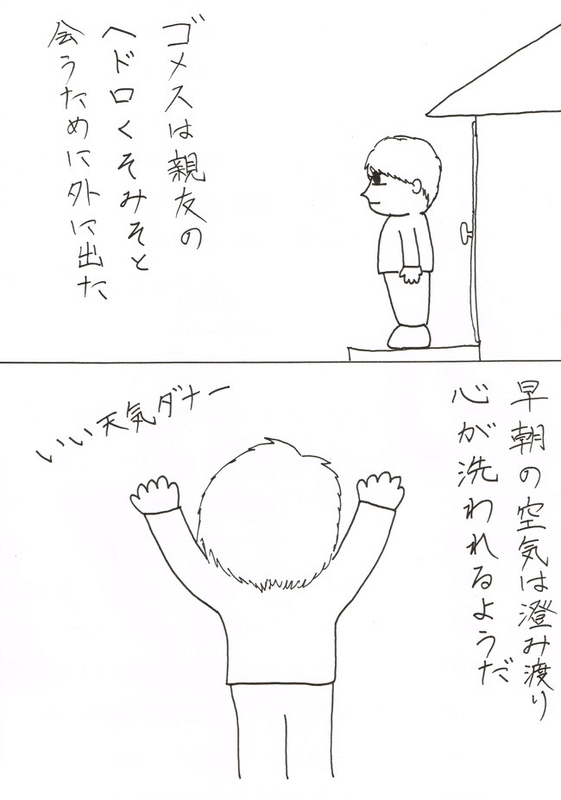 ゴメスは親友の
ヘドロくそみそと
会うために外に出た
早朝の空気は澄み渡り
心が洗われるようだ
いい天気ダナー